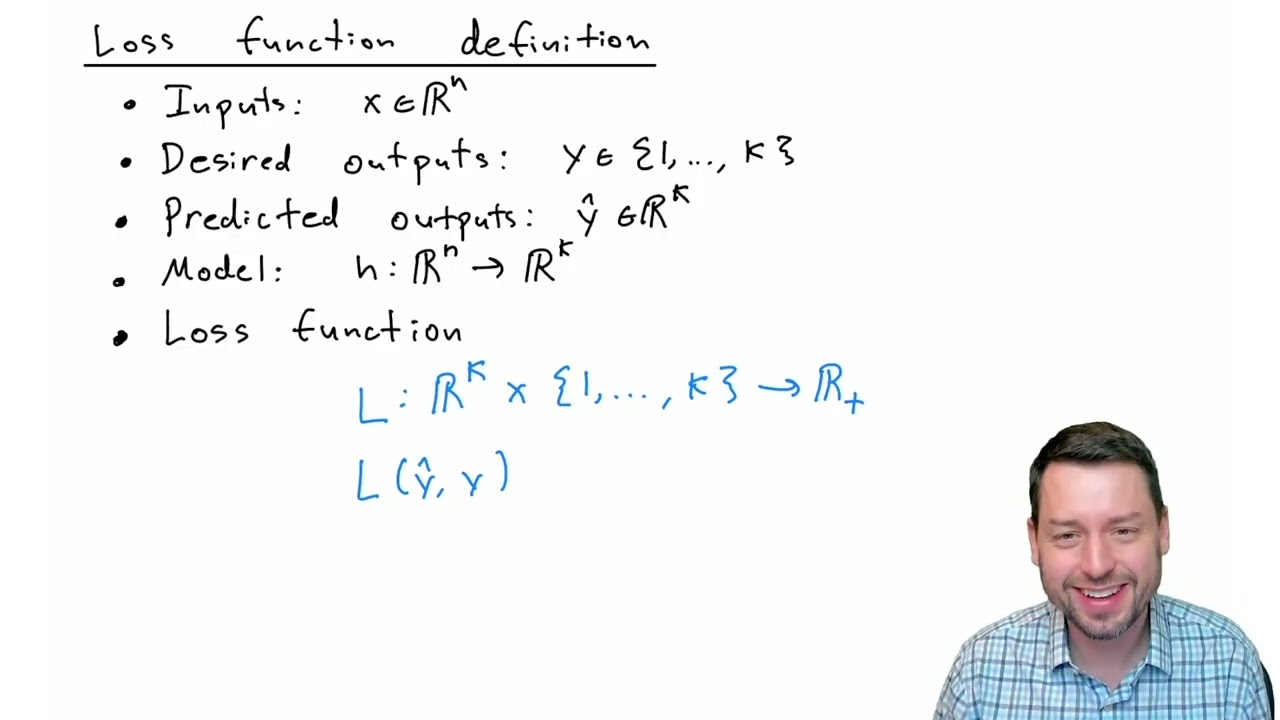 Loss function definition
• Inputs: x ∈ ℝⁿ
• Desired outputs: y ∈ {1, ..., k}
• Predicted outputs: ŷ ∈ ℝᵏ
• Model: h : ℝⁿ → ℝᵏ
• Loss function
L : ℝᵏ × {1, ..., k} → ℝ₊
L(ŷ, y)